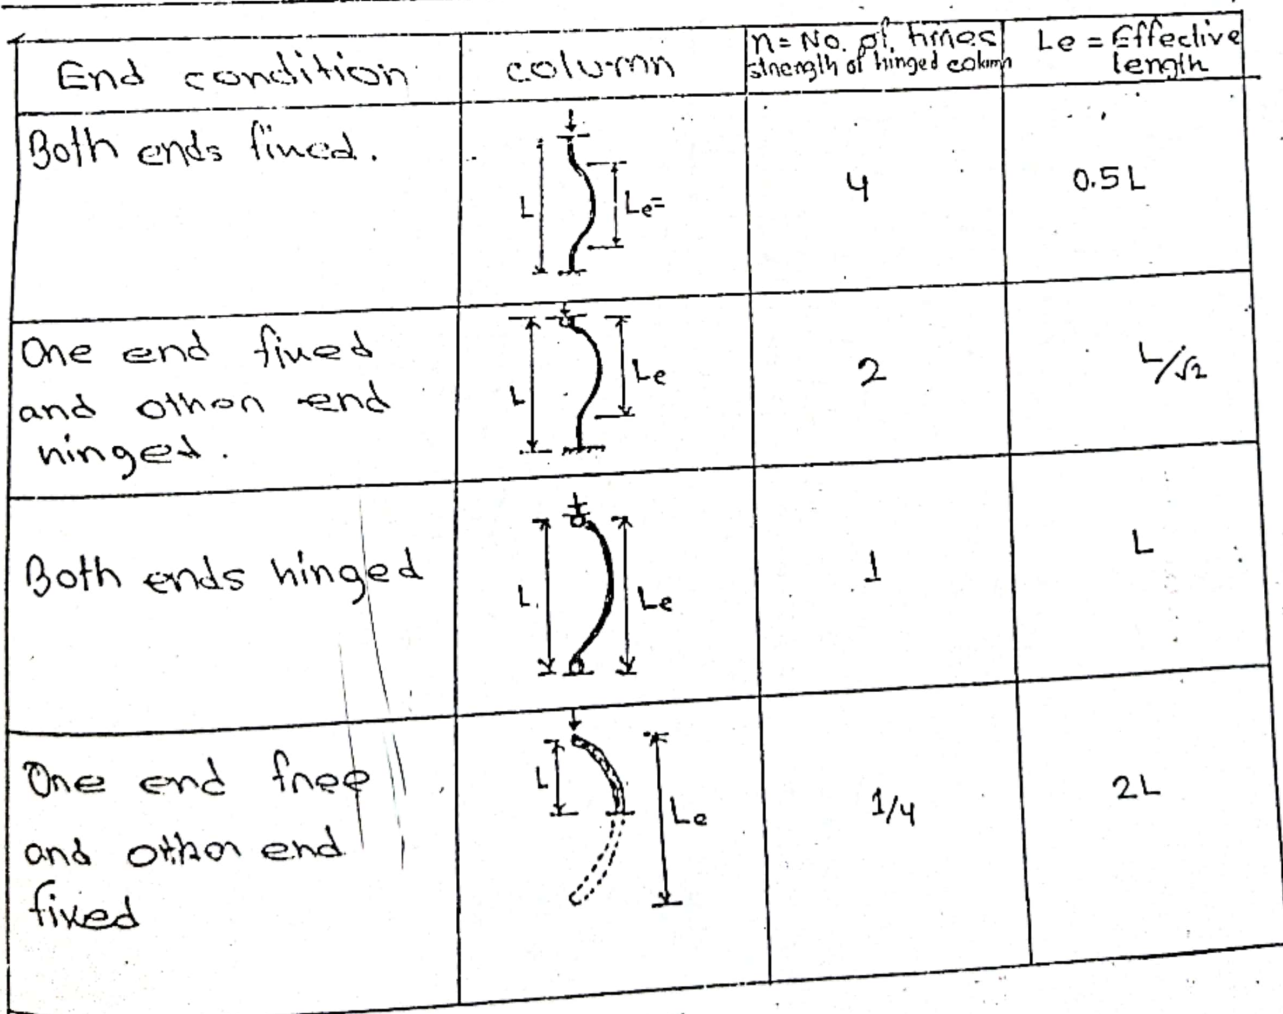 End condition
column
n = No. of times
strength of hinged column
Le = Effective
length
Both ends fixed.
L
Le=
4
0.5L
One end fixed
and other end
hinged.
L
Le
2
L/√2
Both ends hinged
L
Le
1
L
One end free
and other end
fixed
L
Le
1/4
2L